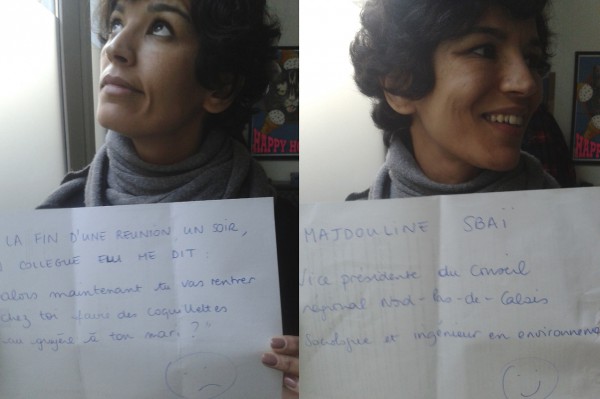 LA FIN D'UNE REUNION UN SOIR,
COLLEGUE ELU ME DIT :
alors maintenant tu vas rentrer
chez toi faire des coquillettes
au gruyère à ton mari ? "
HAPPY HO
MAJDOULINE SBAÏ
Vice présidente du Conseil
régional Nord-Pas-de-Calais
Sociologue et ingénieur en environneme
HAPPY H